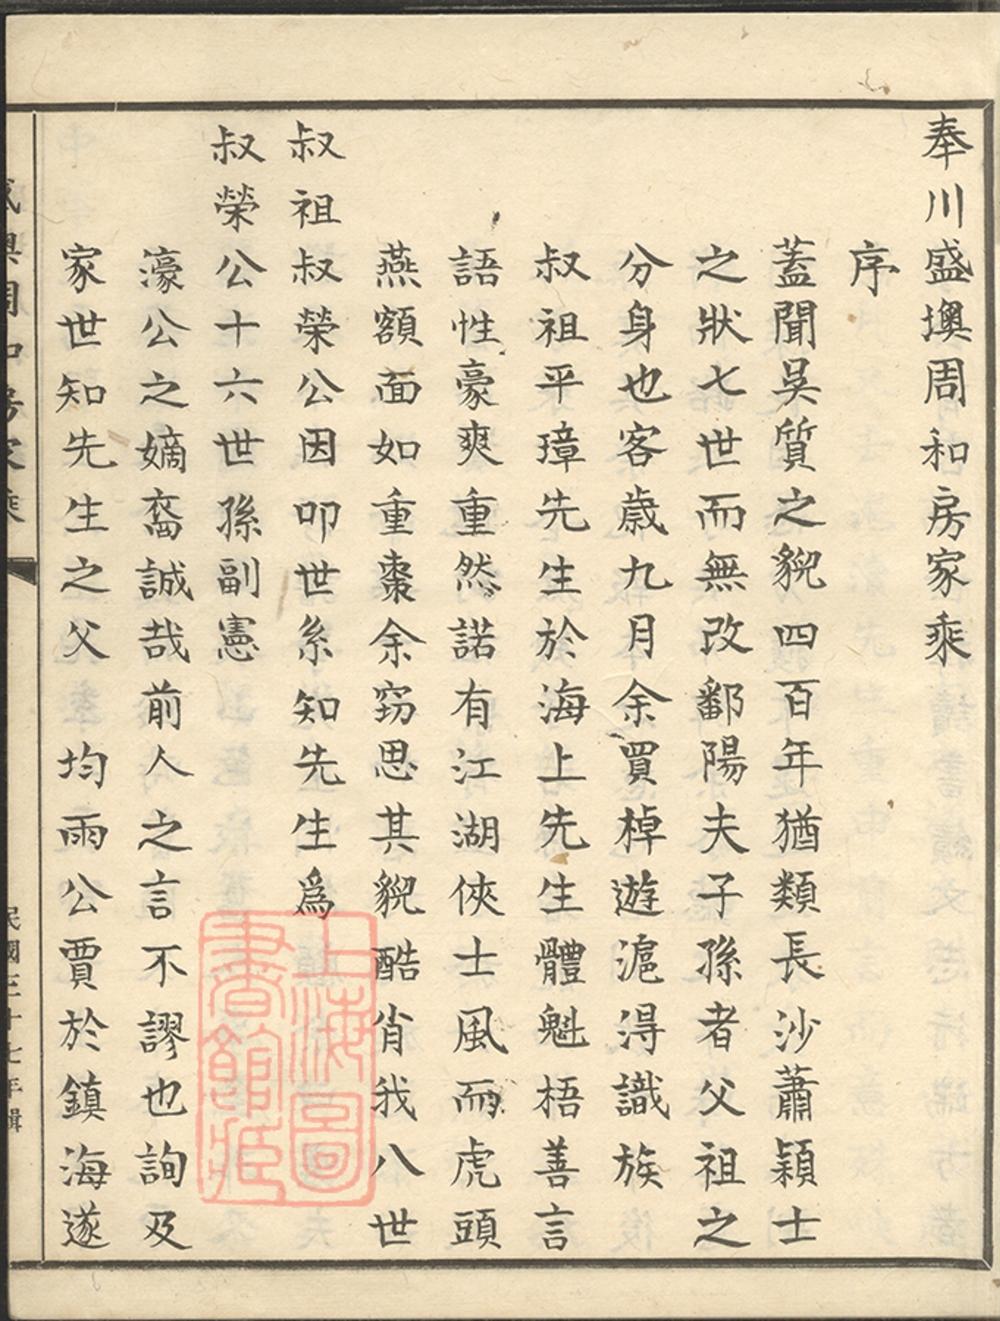 奉川盛墺周和房家乘
序
蓋聞吳質之貌四百年猶類長沙蕭穎士
之狀七世而無改鄱陽夫子孫者父祖之
分身也客歲九月余買棹遊滬得識族
叔祖平璋先生於海上先生體魁梧善言
語性豪爽重然諾有江湖俠士風而虎頭
燕額面如重棗余窃思其貌酷肖我八世
叔祖叔榮公因叩世系知先生爲
叔榮公十六世孫副憲
濠公之嫡裔誠哉前人之言不謬也詢及
家世知先生之父均雨公賈於鎮海遂
周和房家乘
民國三十七年輯
上海圖書館藏